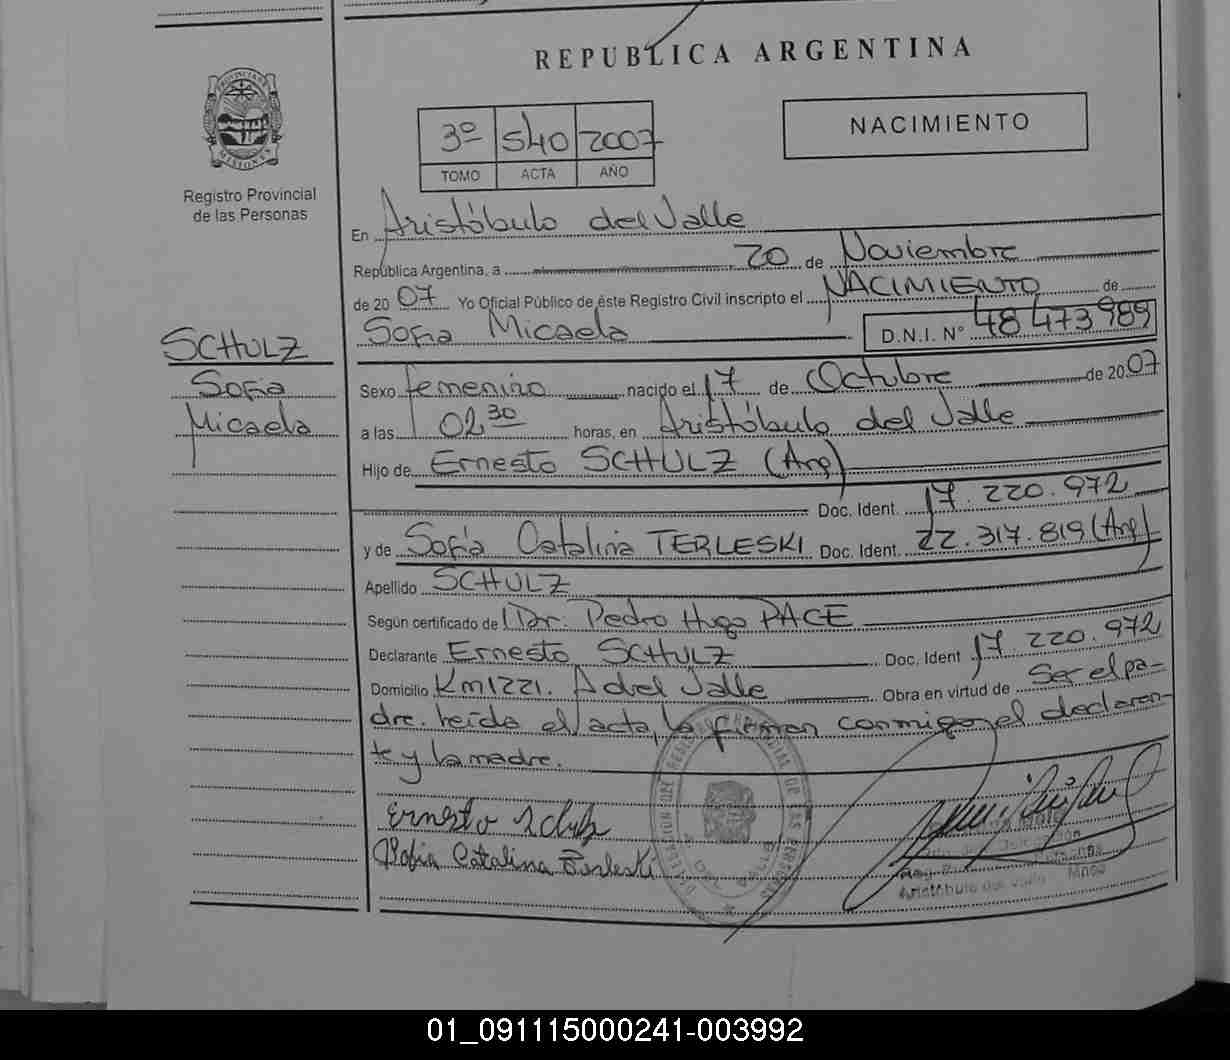 REPUBLICA ARGENTINA
PROVINCIA DE
MISIONES
Registro Provincial
de las Personas
3º 540 2007
TOMO ACTA AÑO
NACIMIENTO
En Aristóbulo del Valle
República Argentina, a 20 de Noviembre
de 2007 Yo Oficial Público de éste Registro Civil inscripto el NACIMIENTO de
Sofia Micaela D.N.I. Nº 48 473 989
SCHULZ
Sofia
Micaela
Sexo femenino nacido el 17 de Octubre de 2007
a las 02 30 horas, en Aristóbulo del Valle
Hijo de Ernesto SCHULZ (Arg)
Doc. Ident. 17.220.972
y de Sofía Catalina TERLESKI Doc. Ident. 22.317.819 (Arg)
Apellido SCHULZ
Según certificado de Dr. Pedro Hugo PACE
Declarante Ernesto SCHULZ Doc. Ident 17.220.972
Domicilio Km1221. A del Valle Obra en virtud de Ser el pa-
dre. leída el acta, la firman conmigo el declaran-
te y la madre.
Ernesto Schulz
Sofia Catalina Terleski
Aristóbulo del Valle Mnes
01_091115000241-003992